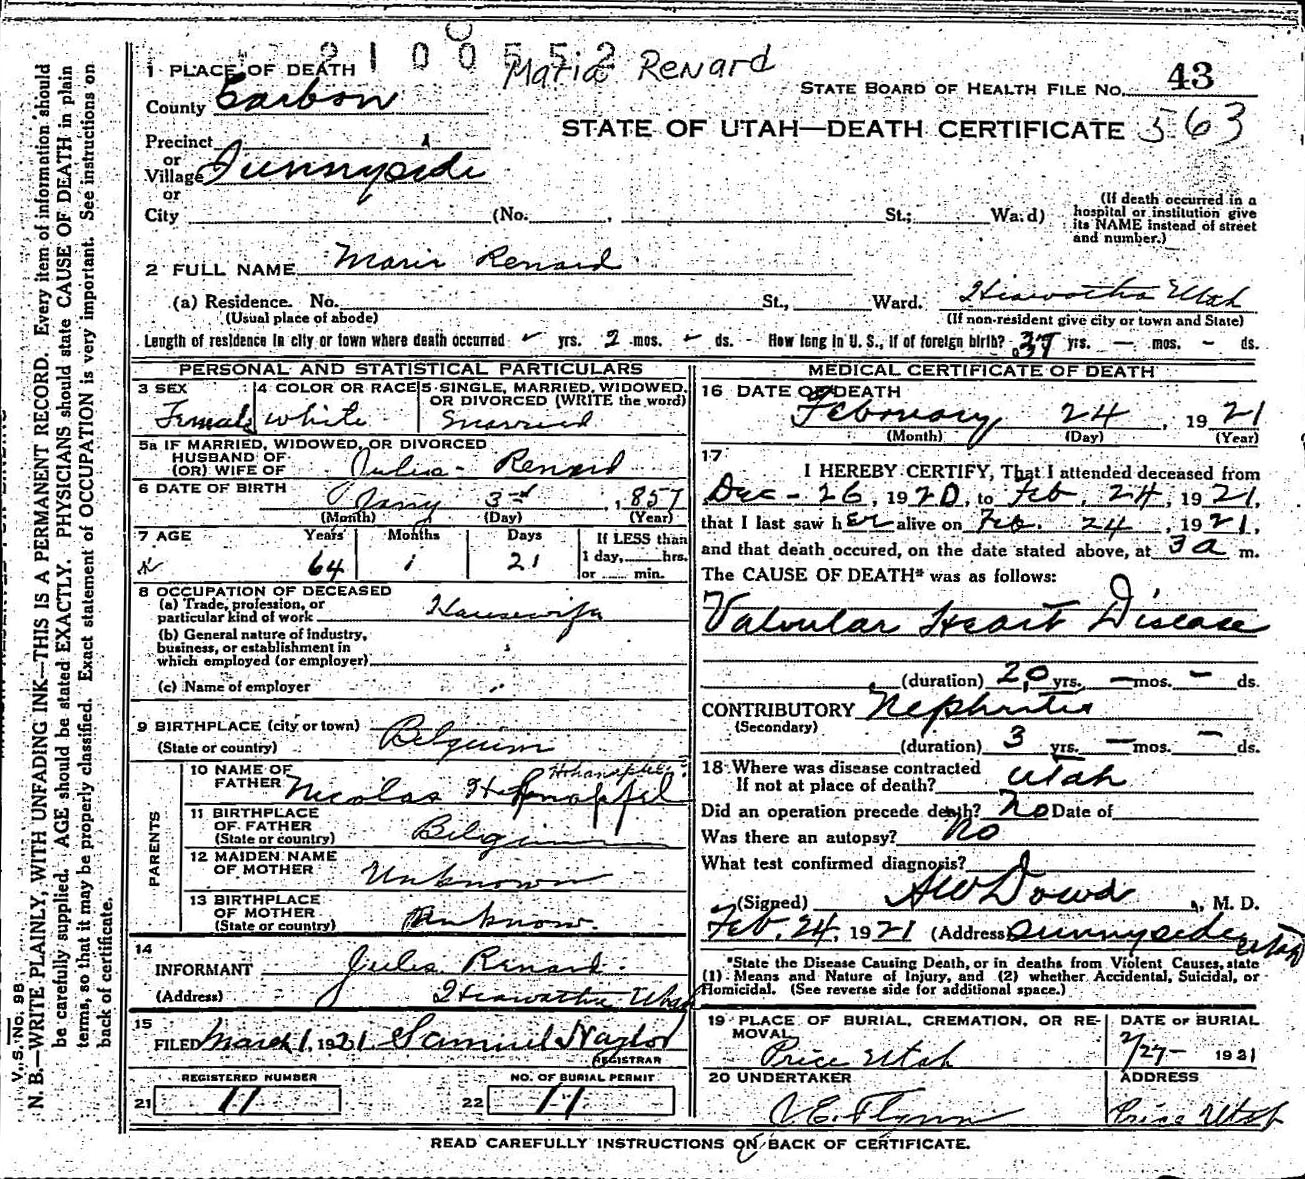 2100552
Maria Renard
1 PLACE OF DEATH
County Carbon
STATE BOARD OF HEALTH FILE NO. 43
STATE OF UTAH—DEATH CERTIFICATE 563
Precinct
or
Village Sunnyside
or
City (No. , St.; Ward)
(If death occurred in a
hospital or institution give
its NAME instead of street
and number.)
2 FULL NAME Marie Renard
(a) Residence. No. St., Ward. Hiawatha Utah
(Usual place of abode) (If non-resident give city or town and State)
Length of residence in city or town where death occurred yrs. 2 mos. ds. How long in U. S., if of foreign birth? 37 yrs. — mos. - ds.
PERSONAL AND STATISTICAL PARTICULARS
3 SEX Female
4 COLOR OR RACE white
5 SINGLE, MARRIED, WIDOWED,
OR DIVORCED (WRITE the word)
Married
5a IF MARRIED, WIDOWED, OR DIVORCED
HUSBAND OF
(OR) WIFE OF Jules Renard
6 DATE OF BIRTH Jany 3rd, 1857
(Month) (Day) (Year)
7 AGE Years Months Days If LESS than
64 1 21 1 day, hrs.
or min.
8 OCCUPATION OF DECEASED
(a) Trade, profession, or
particular kind of work Housewife
(b) General nature of industry,
business, or establishment in
which employed (or employer)
(c) Name of employer
9 BIRTHPLACE (city or town)
(State or country) Belguim
PARENTS
10 NAME OF
FATHER Nicolas
11 BIRTHPLACE
OF FATHER
(State or country) Belguim
12 MAIDEN NAME
OF MOTHER Unknown
13 BIRTHPLACE
OF MOTHER
(State or country) Unknow.
14
INFORMANT Jules Renard.
(Address) Hiawatha Utah
15
FILED March 1, 1921 Samuel Naylor
REGISTRAR
REGISTERED NUMBER NO. OF BURIAL PERMIT
21 11 22 11
MEDICAL CERTIFICATE OF DEATH
16 DATE OF DEATH
February 24, 1921
(Month) (Day) (Year)
17
I HEREBY CERTIFY, That I attended deceased from
Dec - 26, 1920, to Feb. 24, 1921,
that I last saw her alive on Feb. 24, 1921,
and that death occured, on the date stated above, at 3a m.
The CAUSE OF DEATH* was as follows:
Valvular Heart Disease
(duration) 20 yrs. — mos. — ds.
CONTRIBUTORY Nephritis
(Secondary)
(duration) 3 yrs. — mos. — ds.
18 Where was disease contracted
If not at place of death? Utah
Did an operation precede death? No Date of
Was there an autopsy? No
What test confirmed diagnosis?
(Signed) AW Dowd, M. D.
Feb. 24, 1921 (Address Sunnyside Utah
*State the Disease Causing Death, or in deaths from Violent Causes, state
(1) Means and Nature of Injury, and (2) whether Accidental, Suicidal, or
Homicidal. (See reverse side for additional space.)
19 PLACE OF BURIAL, CREMATION, OR RE-
MOVAL
Price Utah
DATE OF BURIAL
2/27- 1921
20 UNDERTAKER
Flynn
ADDRESS
Price Utah
READ CAREFULLY INSTRUCTIONS ON BACK OF CERTIFICATE.
V. S. NO. 98
N. B.—WRITE PLAINLY, WITH UNFADING INK—THIS IS A PERMANENT RECORD. Every item of information should
be carefully supplied. AGE should be stated EXACTLY. PHYSICIANS should state CAUSE OF DEATH in plain
terms, so that it may be properly classified. Exact statement of OCCUPATION is very important. See instructions on
back of certificate.